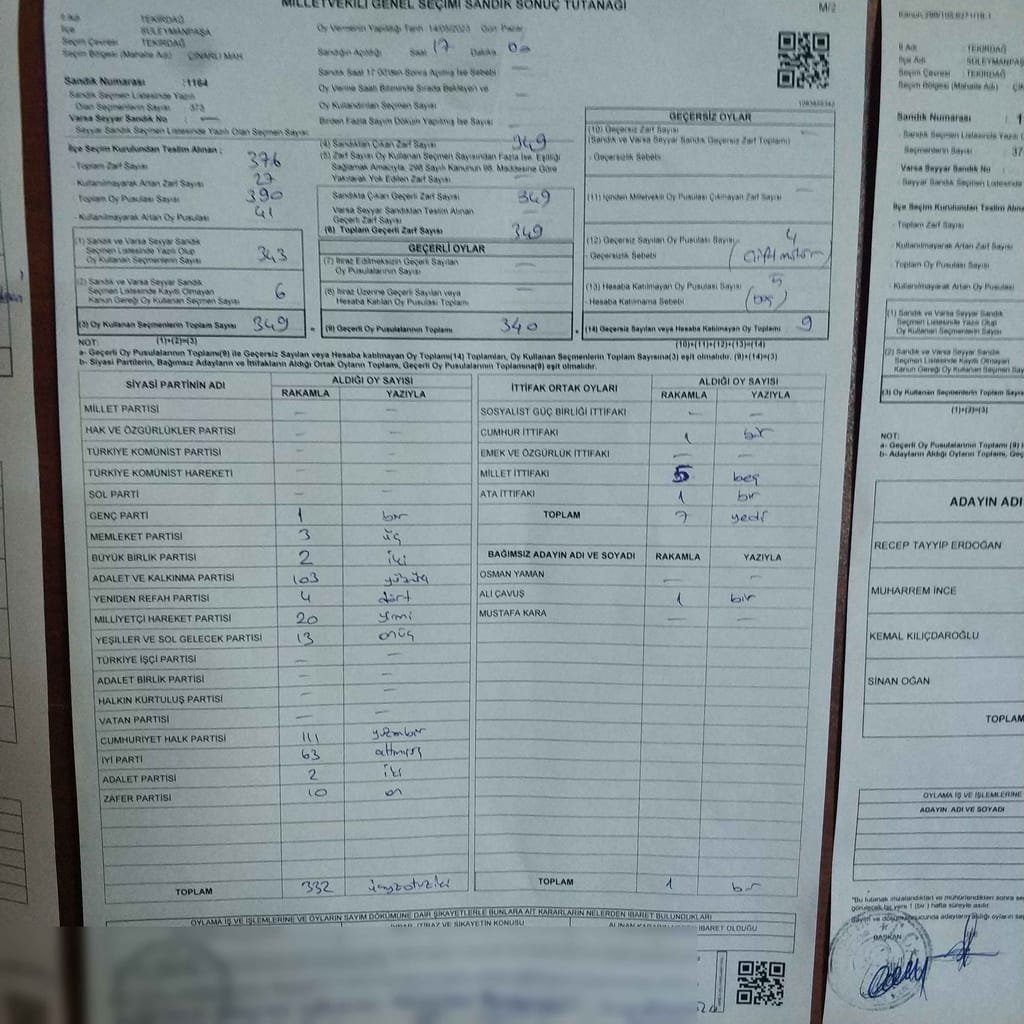 MİLLETVEKİLİ GENEL SEÇİMİ SANDIK SONUÇ TUTANAĞI
M/2
İl Adı : TEKİRDAĞ
İlçe : SÜLEYMANPAŞA
Seçim Çevresi : TEKİRDAĞ
Seçim Bölgesi (Mahalle Adı) : ÇINARLI MAH
Oy Vermenin Yapıldığı Tarih: 14/05/2023 Gün: Pazar
Sandığın Açıldığı Saat 17 Dakika 00
Sandık Saat 17:00'den Sonra Açılmış İse Sebebi —
Oy Verme Saati Bitiminde Sırada Bekleyen ve
Oy Kullandırılan Seçmen Sayısı —
Birden Fazla Sayım Döküm Yapılmış İse Sayısı —
Sandık Numarası : 1164
Sandık Seçmen Listesinde Yazılı
Olan Seçmenlerin Sayısı : 373
Varsa Seyyar Sandık No —
Seyyar Sandık Seçmen Listesinde Yazılı Olan Seçmen Sayısı
İlçe Seçim Kurulundan Teslim Alınan ;
- Toplam Zarf Sayısı 376
- Kullanılmayarak Artan Zarf Sayısı 27
- Toplam Oy Pusulası Sayısı 390
- Kullanılmayarak Artan Oy Pusulası 41
(1) Sandık ve Varsa Seyyar Sandık
Seçmen Listesinde Yazılı Olup
Oy Kullanan Seçmenlerin Sayısı 343
(2) Sandık ve Varsa Seyyar Sandık
Seçmen Listesinde Kayıtlı Olmayan
Kanun Gereği Oy Kullanan Seçmen Sayısı 6
(3) Oy Kullanan Seçmenlerin Toplam Sayısı 349
(1)+(2)=(3)
(4) Sandıktan Çıkan Zarf Sayısı 349
(5) Zarf Sayısı Oy Kullanan Seçmen Sayısından Fazla İse, Eşitliği
Sağlamak Amacıyla, 298 Sayılı Kanunun 98. Maddesine Göre
Yakılarak Yok Edilen Zarf Sayısı —
Sandıkta Çıkan Geçerli Zarf Sayısı 349
Varsa Seyyar Sandıktan Teslim Alınan
Geçerli Zarf Sayısı —
(6) Toplam Geçerli Zarf Sayısı 349
GEÇERLİ OYLAR
(7) İtiraz Edilmeksizin Geçerli Sayılan
Oy Pusulalarının Sayısı —
(8) İtiraz Üzerine Geçerli Sayılan veya
Hesaba Katılan Oy Pusulası Toplamı —
(9) Geçerli Oy Pusulalarının Toplamı 340
GEÇERSİZ OYLAR
(10) Geçersiz Zarf Sayısı
(Sandık ve Varsa Seyyar Sandık Geçersiz Zarf Toplamı) —
- Geçersizlik Sebebi
(11) İçinden Milletvekili Oy Pusulası Çıkmayan Zarf Sayısı —
(12) Geçersiz Sayılan Oy Pusulası Sayısı 4
- Geçersizlik Sebebi
(13) Hesaba Katılmayan Oy Pusulası Sayısı 5
- Hesaba Katılmama Sebebi (boş)
(14) Geçersiz Sayılan veya Hesaba Katılmayan Oy Toplamı 9
(10)+(11)+(12)+(13)=(14)
NOT:
a- Geçerli Oy Pusulalarının Toplamı(9) ile Geçersiz Sayılan veya Hesaba katılmayan Oy Toplamı(14) Toplamları, Oy Kullanan Seçmenlerin Toplam Sayısına(3) eşit olmalıdır. (9)+(14)=(3)
b- Siyasi Partilerin, Bağımsız Adayların ve İttifakların Aldığı Ortak Oyların Toplamı, Geçerli Oy Pusulalarının Toplamına(9) eşit olmalıdır.
SİYASİ PARTİNİN ADI ALDIĞI OY SAYISI
RAKAMLA YAZIYLA
MİLLET PARTİSİ — —
HAK VE ÖZGÜRLÜKLER PARTİSİ — —
TÜRKİYE KOMÜNİST PARTİSİ — —
TÜRKİYE KOMÜNİST HAREKETİ — —
SOL PARTİ — —
GENÇ PARTİ 1 bir
MEMLEKET PARTİSİ 3 üç
BÜYÜK BİRLİK PARTİSİ 2 iki
ADALET VE KALKINMA PARTİSİ 103 yüzüç
YENİDEN REFAH PARTİSİ 4 dört
MİLLİYETÇİ HAREKET PARTİSİ 20 yirmi
YEŞİLLER VE SOL GELECEK PARTİSİ 13 onüç
TÜRKİYE İŞÇİ PARTİSİ — —
ADALET BİRLİK PARTİSİ — —
HALKIN KURTULUŞ PARTİSİ — —
VATAN PARTİSİ — —
CUMHURİYET HALK PARTİSİ 111 yüzonbir
İYİ PARTİ 63 altmışüç
ADALET PARTİSİ 2 iki
ZAFER PARTİSİ 10 on
TOPLAM 332 üçyüzotuziki
İTTİFAK ORTAK OYLARI ALDIĞI OY SAYISI
RAKAMLA YAZIYLA
SOSYALİST GÜÇ BİRLİĞİ İTTİFAKI — —
CUMHUR İTTİFAKI 1 bir
EMEK VE ÖZGÜRLÜK İTTİFAKI — —
MİLLET İTTİFAKI 5 beş
ATA İTTİFAKI 1 bir
TOPLAM 7 yedi
BAĞIMSIZ ADAYIN ADI VE SOYADI RAKAMLA YAZIYLA
OSMAN YAMAN — —
ALİ ÇAVUŞ 1 bir
MUSTAFA KARA — —
TOPLAM 1 bir
OYLAMA İŞ VE İŞLEMLERİNE VE OYLARIN SAYIM DÖKÜMÜNE DAİR ŞİKAYETLERLE BUNLARA AİT KARARLARIN NELERDEN İBARET BULUNDUKLARI
İHBAR, İTİRAZ VE ŞİKAYETİN KONUSU
İl Adı : TEKİRDAĞ
İlçe Adı : SÜLEYMANPAŞA
Seçim Çevresi : TEKİRDAĞ
Seçim Bölgesi (Mahalle Adı)
Sandık Numarası
- Sandık Seçmen Listesinde
Seçmenlerin Sayısı
Varsa Seyyar Sandık No
- Seyyar Sandık Seçmen Listesinde
- Toplam Zarf Sayısı
- Kullanılmayarak Artan Zarf Sayısı
- Toplam Oy Pusulası Sayısı
- Kullanılmayarak Artan Oy Pusulası
(1) Sandık ve Varsa Seyyar Sandık
Seçmen Listesinde Yazılı Olup
Oy Kullanan Seçmenlerin Sayısı
(2) Sandık ve Varsa Seyyar Sandık
Seçmen Listesinde Kayıtlı Olmayan
Kanun Gereği Oy Kullanan Seçmen
(3) Oy Kullanan Seçmenlerin Toplam
(1)+(2)=(3)
NOT:
a- Geçerli Oy Pusulalarının Toplamı (9)
b- Adayların Aldığı Oyların Toplamı,
ADAYIN ADI
RECEP TAYYİP ERDOĞAN
MUHARREM İNCE
KEMAL KILIÇDAROĞLU
SİNAN OĞAN
TOPLAM
OYLAMA İŞ VE İŞLEMLERİNE
ADAYIN ADI VE SOYADI
BAŞKAN